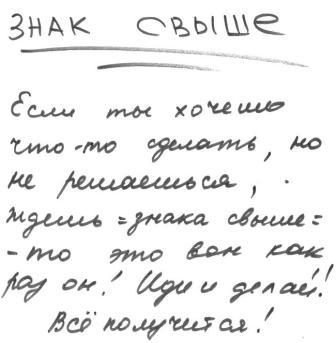 ЗНАК СВЫШЕ
Если ты хочешь
что-то сделать, но
не решаешься,
ждешь =знака свыше=
-то это вон как
раз он! Иди и делай!
Всё получится!